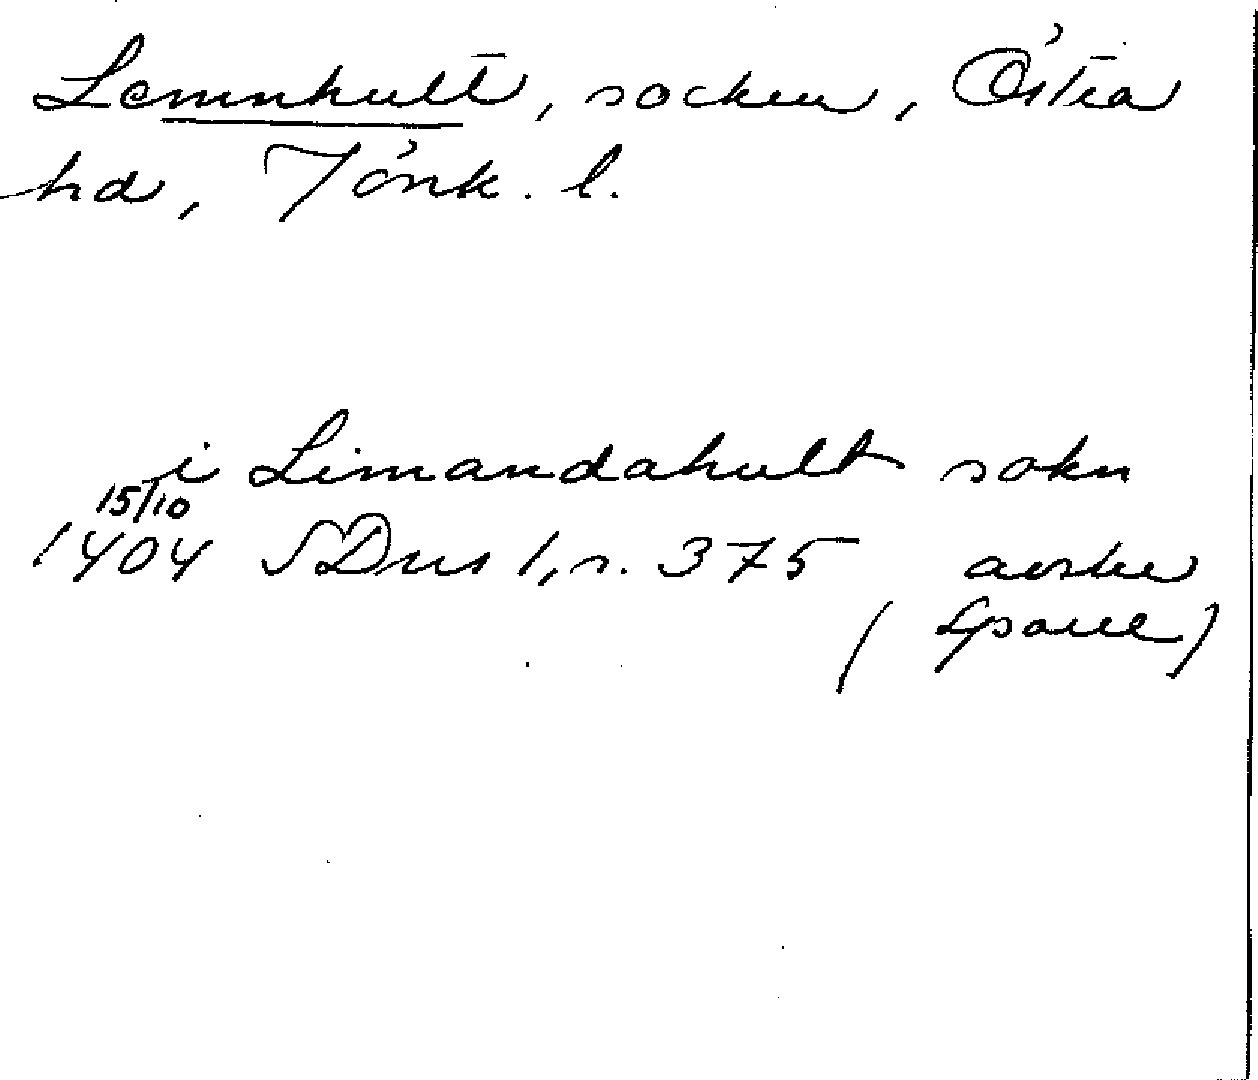 Lemnhult, socken, Östra
hd, Jönk. l.
i Limandahult sokn
15/10
1404 SDns 1, s. 375 avskr